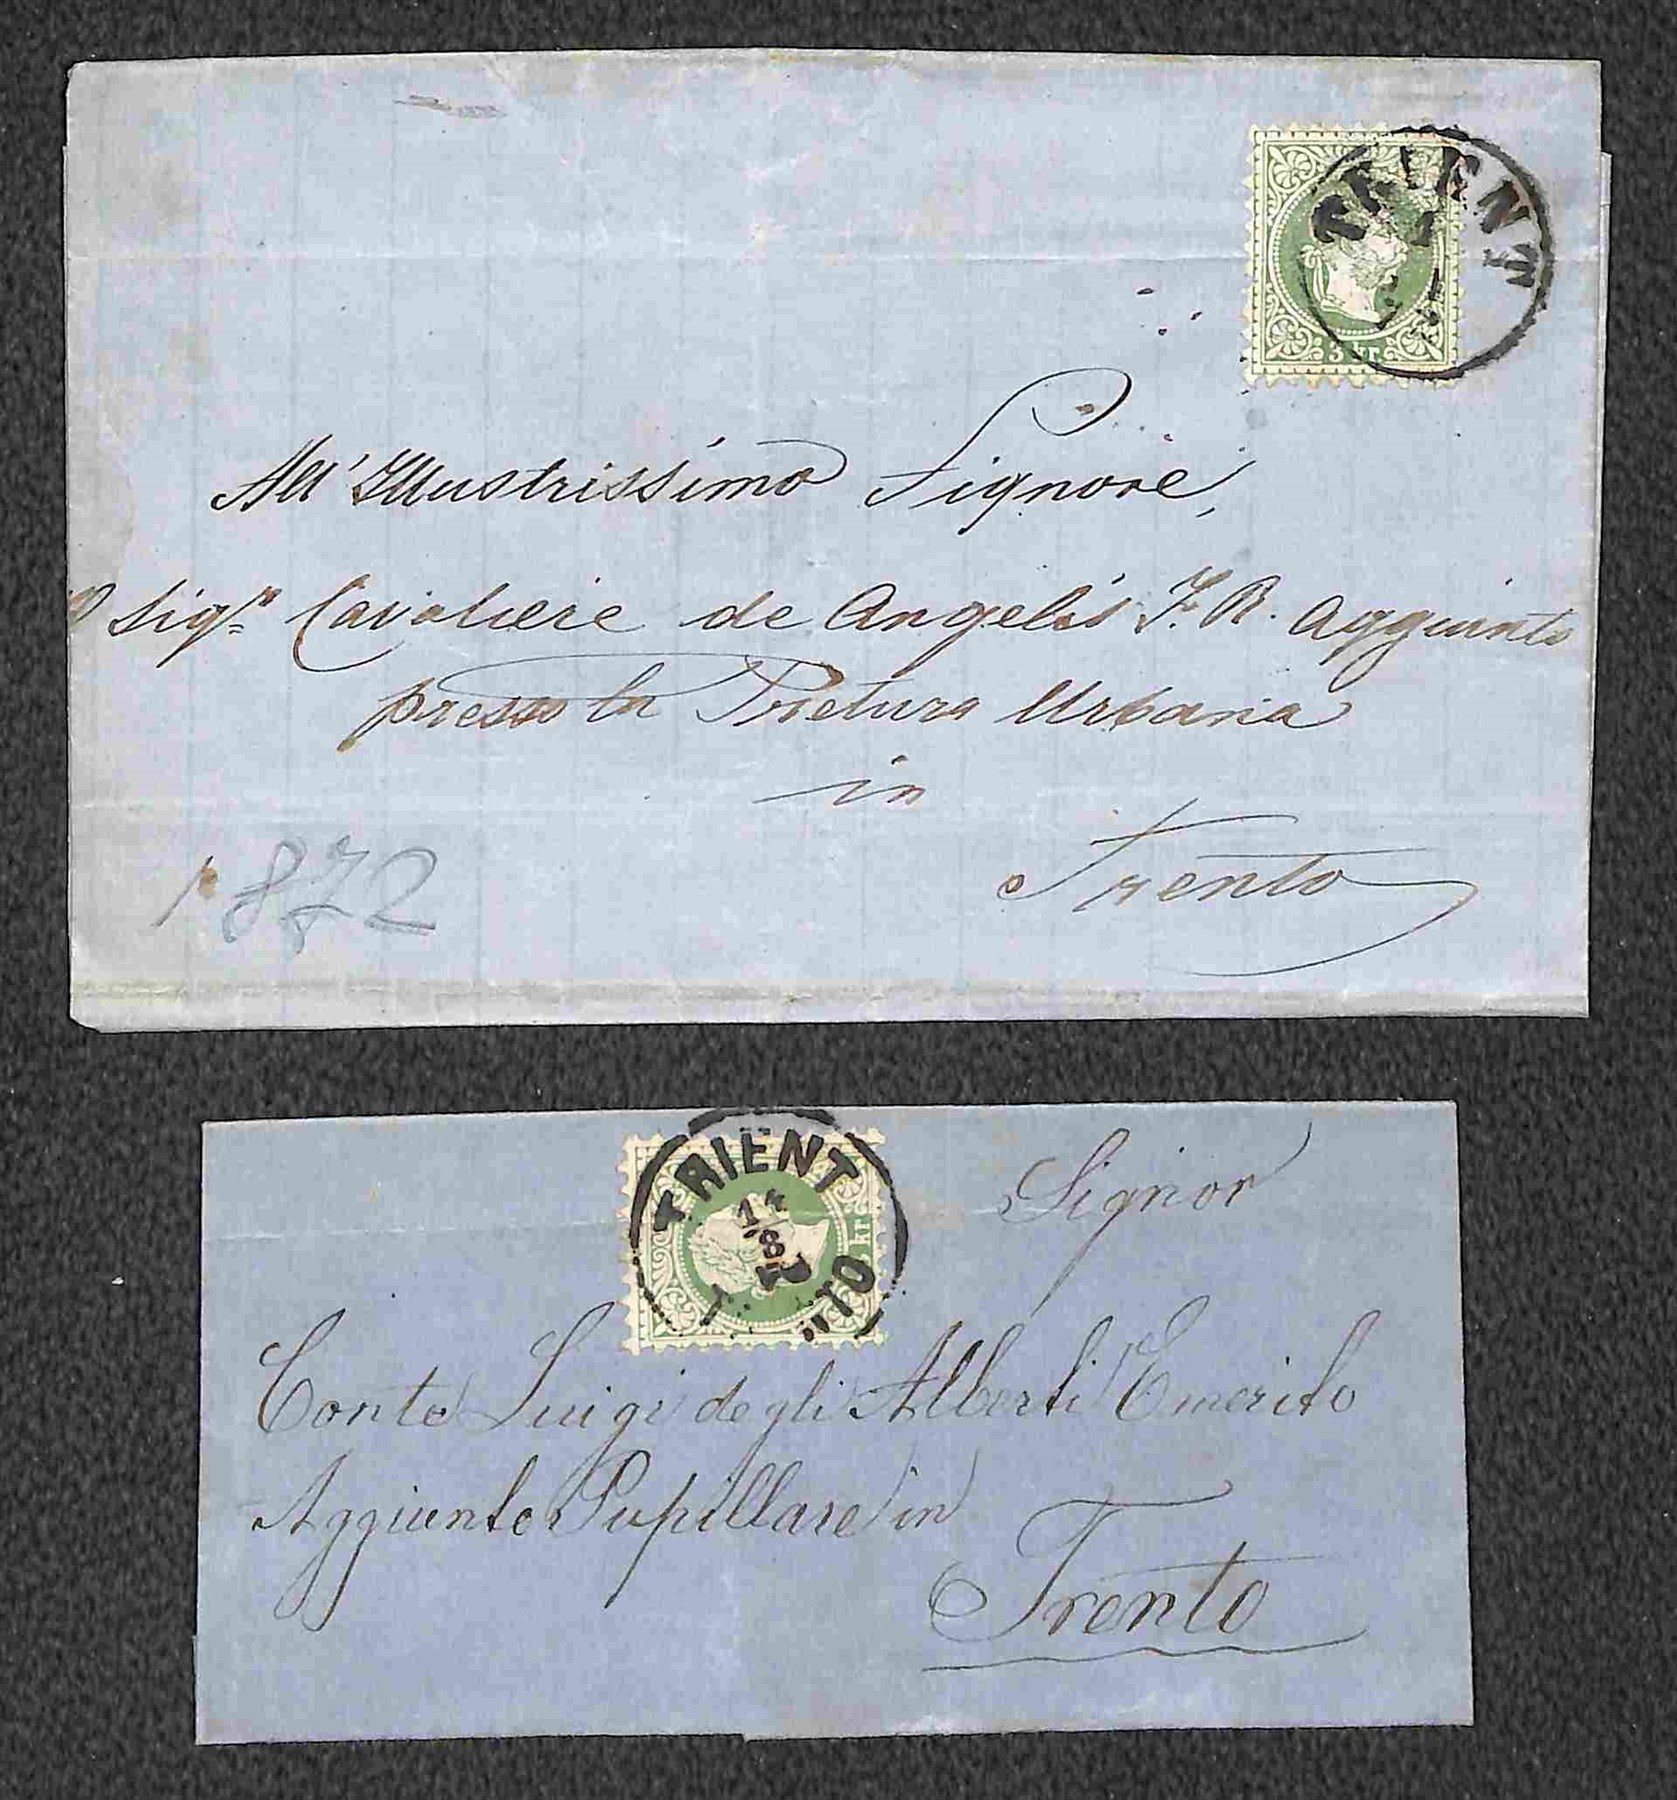 TRIENT
3 kr
All' Illustrissimo Signore,
Sigr Cavaliere de Angelis I. R. Aggiunto
presso la Pretura Urbana
in
Trento
1872
TRIENT
14
8
kr
Signor
Conte Luigi degli Alberti Emerito
Aggiunto Pupillare in
Trento